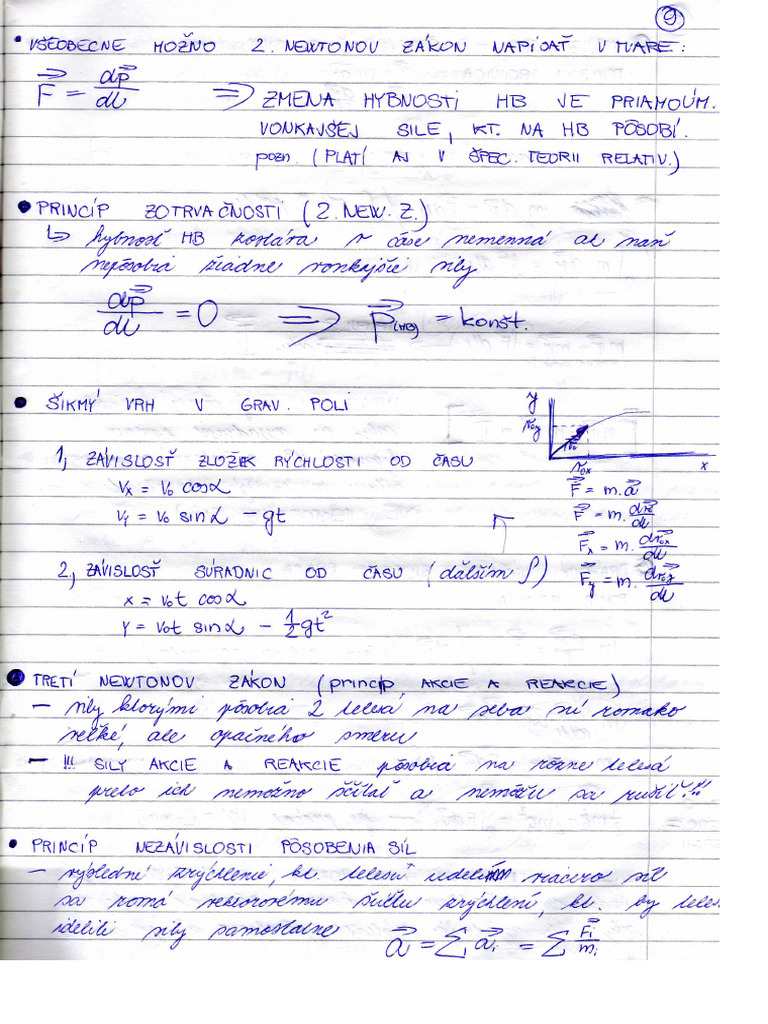 9
• VŠEOBECNE MOŽNO 2. NEWTONOV ZÁKON NAPÍSAŤ V TVARE:
F⃗ = dp⃗/dt ⇒ ZMENA HYBNOSTI HB JE PRIAMOÚM.
VONKAJŠEJ SILE, KT. NA HB PÔSOBÍ.
pozn. (PLATÍ AJ V ŠPEC. TEORII RELATIV.)
• PRINCÍP ZOTRVAČNOSTI (2. NEW. Z.)
↳ hybnosť HB zostáva v čase nemenná ak naň
nepôsobia žiadne vonkajšie sily
dp⃗/dt = 0 ⇒ p⃗(HB) = konšt.
• ŠIKMÝ VRH V GRAV. POLI
y
v₀y
v₀
v₀x
x
1, ZÁVISLOSŤ ZLOŽIEK RÝCHLOSTI OD ČASU
Vx = V₀ cosα
Vy = V₀ sinα - gt
F⃗ = m.a⃗
F⃗ = m. dv⃗₀/dt
F⃗x = m. dv⃗₀x/dt
F⃗y = m. dv⃗₀y/dt
2, ZÁVISLOSŤ SÚRADNIC OD ČASU (ďalším ∫)
x = V₀t cosα
Y = V₀t sinα - 1/2 gt²
• TRETÍ NEWTONOV ZÁKON (princíp AKCIE A REAKCIE)
- sily ktorými pôsobia 2 telesá na seba sú rovnako
veľké, ale opačného smeru
- !!! SILY AKCIE A REAKCIE pôsobia na rôzne telesá
preto ich nemožno sčítať a nemôžu sa rušiť!!!
• PRINCÍP NEZÁVISLOSTI PÔSOBENIA SÍL
- výsledné zrýchlenie, kt. telesu viacero síl
sa rovná vektorovému súčtu zrýchlení, kt. by teles
idelili sily samostatne a⃗ = Σᵢ a⃗ᵢ = Σ F⃗i/mi